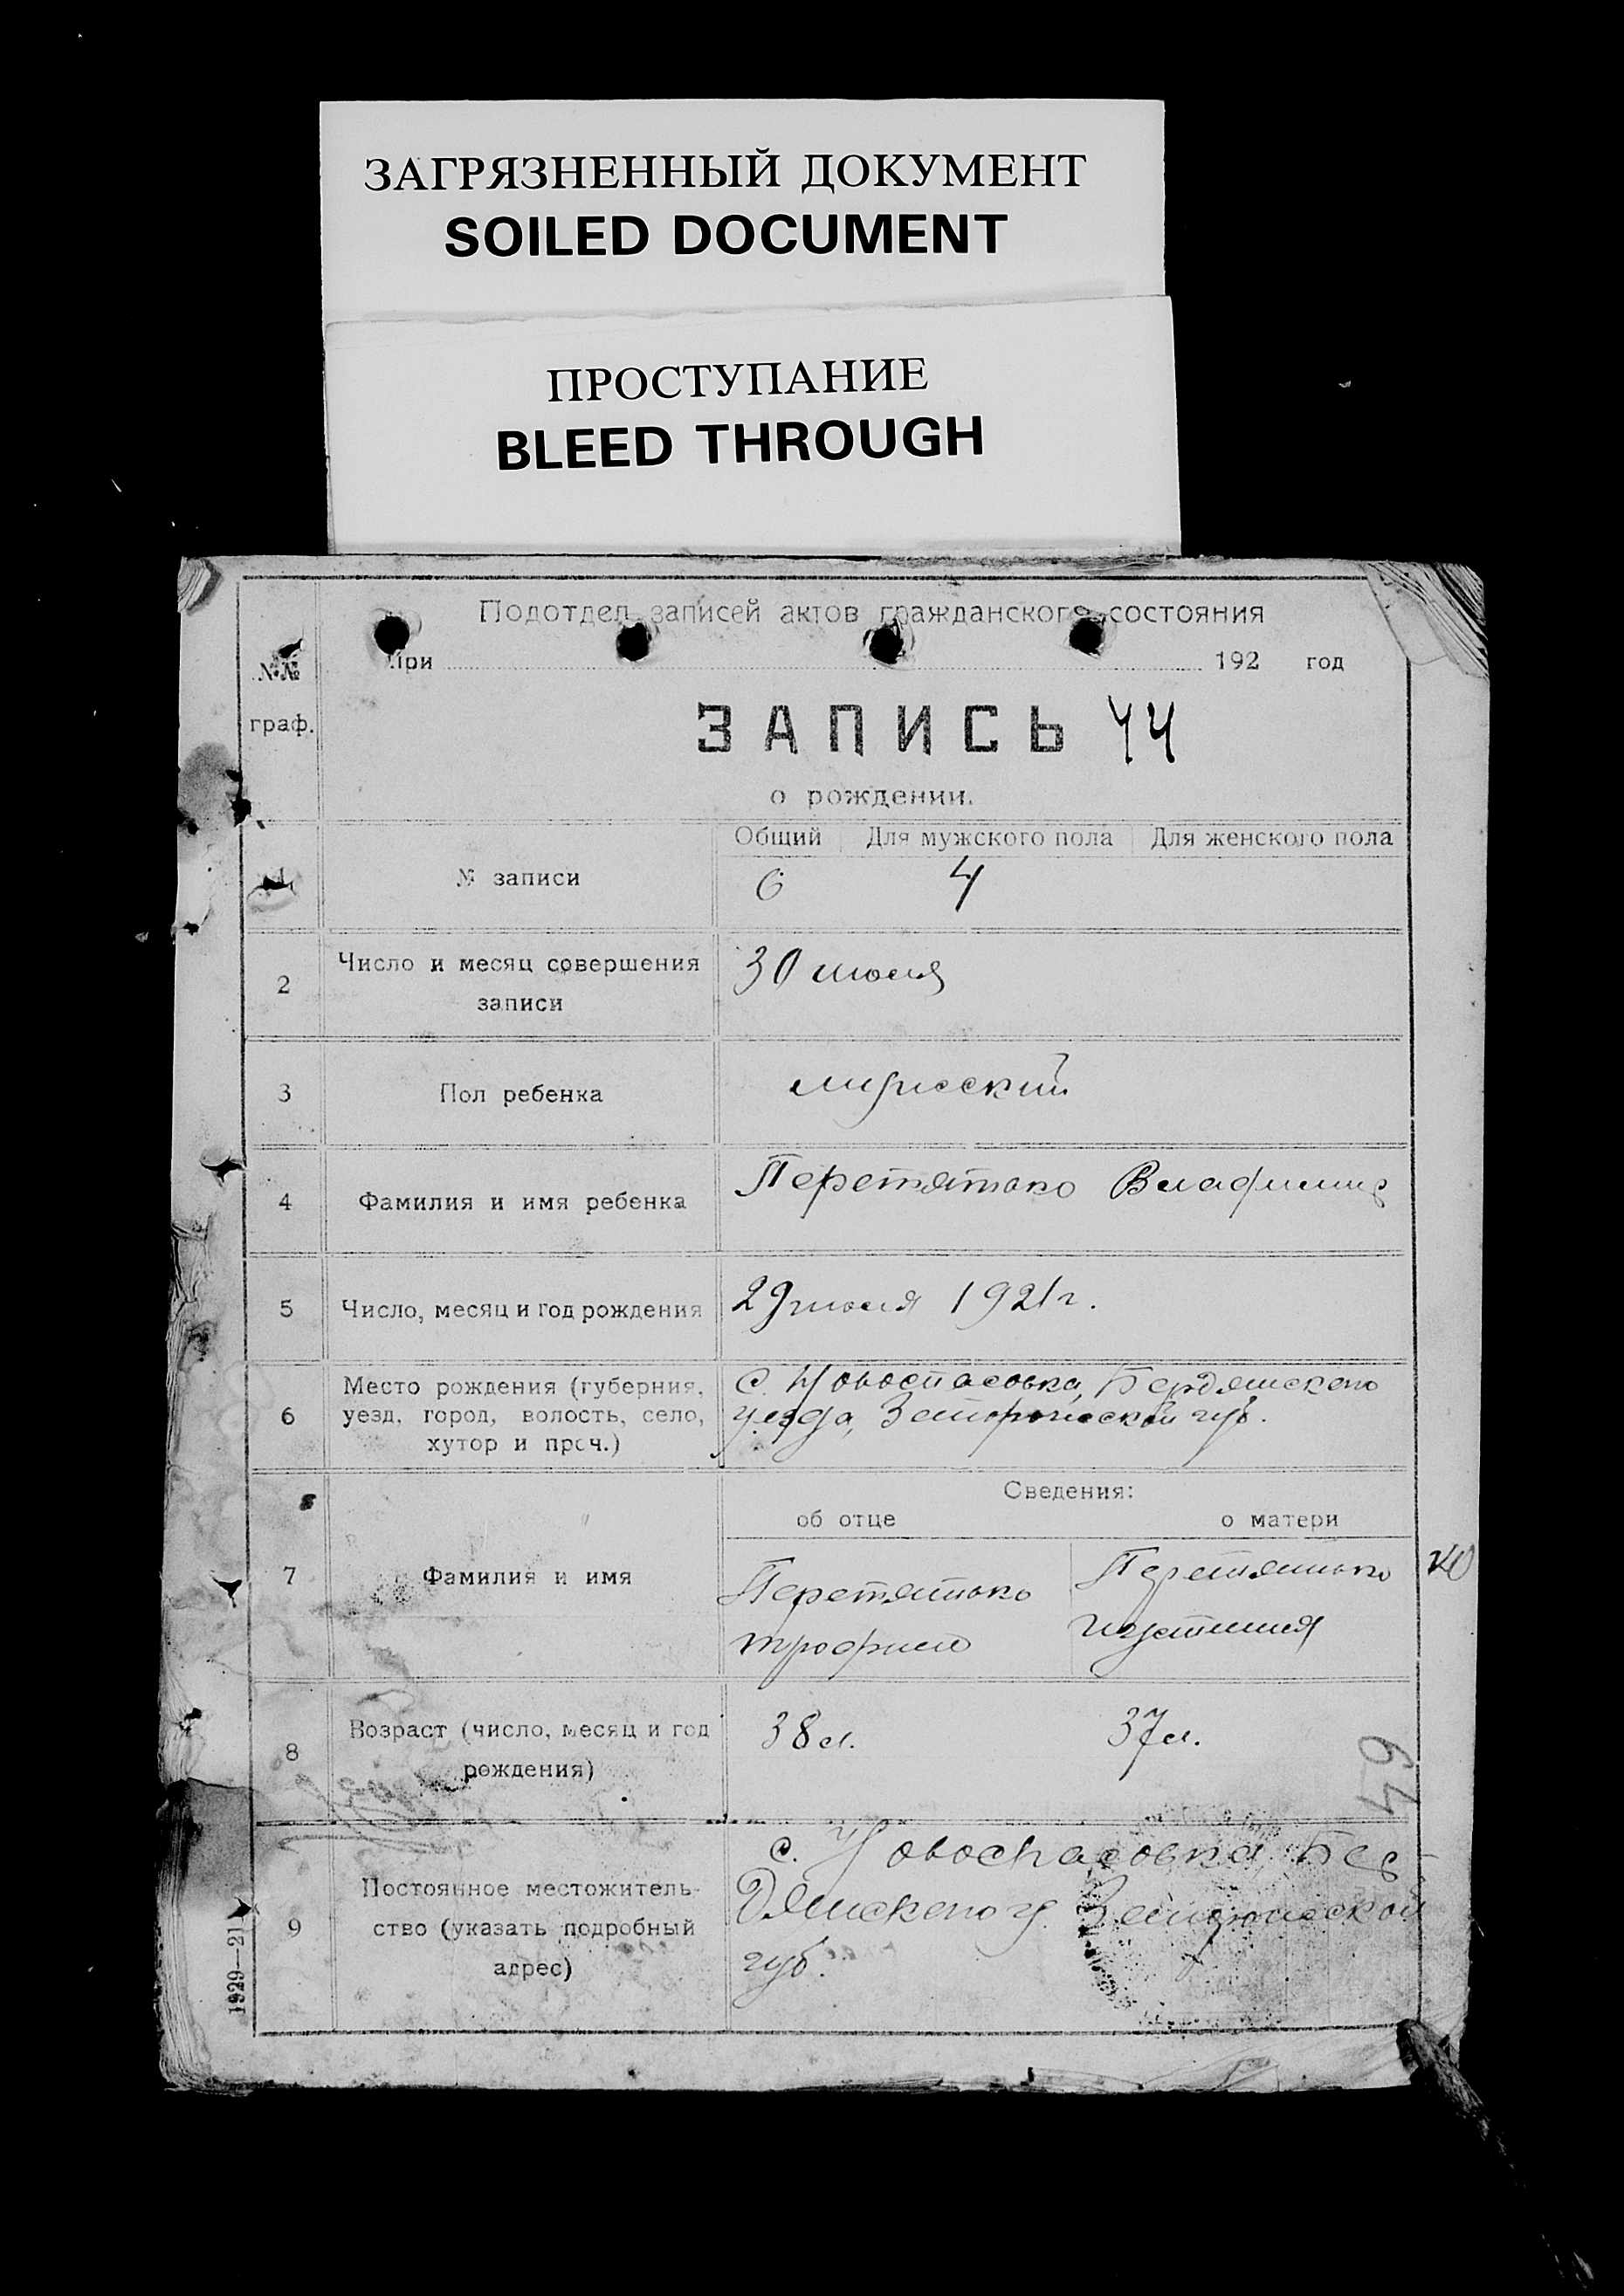 ЗАГРЯЗНЕННЫЙ ДОКУМЕНТ
SOILED DOCUMENT
ПРОСТУПАНИЕ
BLEED THROUGH
Подотдел записей актов гражданского состояния
№№ при 192 год
граф.
ЗАПИСЬ 44
о рождении.
Общий Для мужского пола Для женского пола
1 № записи 6 4
2 Число и месяц совершения записи
30 июля
3 Пол ребенка мужеский
4 Фамилия и имя ребенка Перетятько Владимир
5 Число, месяц и год рождения 29 июля 1921 г.
6 Место рождения (губерния,
уезд, город, волость, село,
хутор и проч.)
с. Новоспасовка, Бердянского
уезда, Запорожской губ.
Сведения:
об отце о матери
7 Фамилия и имя
Перетятько Перетятько
Трофим
8 Возраст (число, месяц и год
рождения)
38 л. 37 л.
49
9 Постоянное местожитель-
ство (указать подробный
адрес)
с. Новоспасовка, Бер-
дянского у. Запорожской
губ.
1929—21